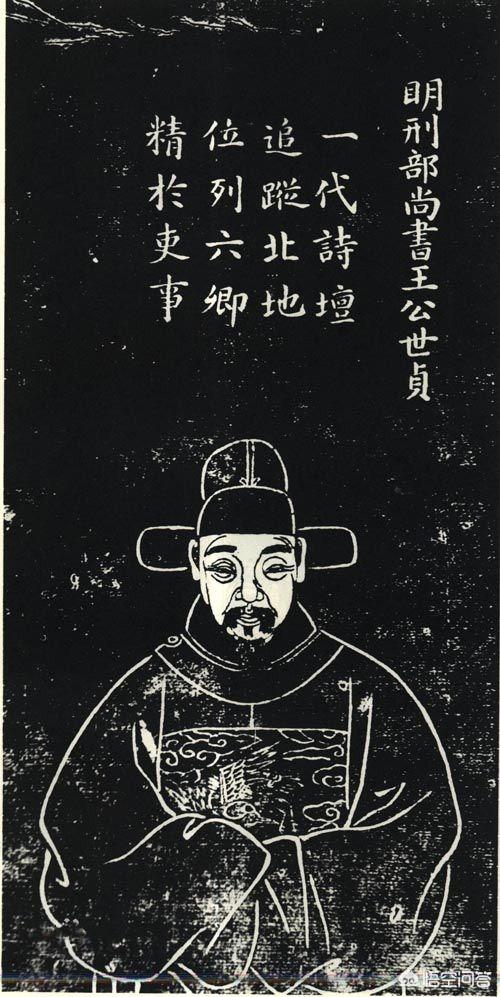 明刑部尚書王公世貞
一代詩壇
追蹤北地
位列六卿
精於吏事
悟空问答